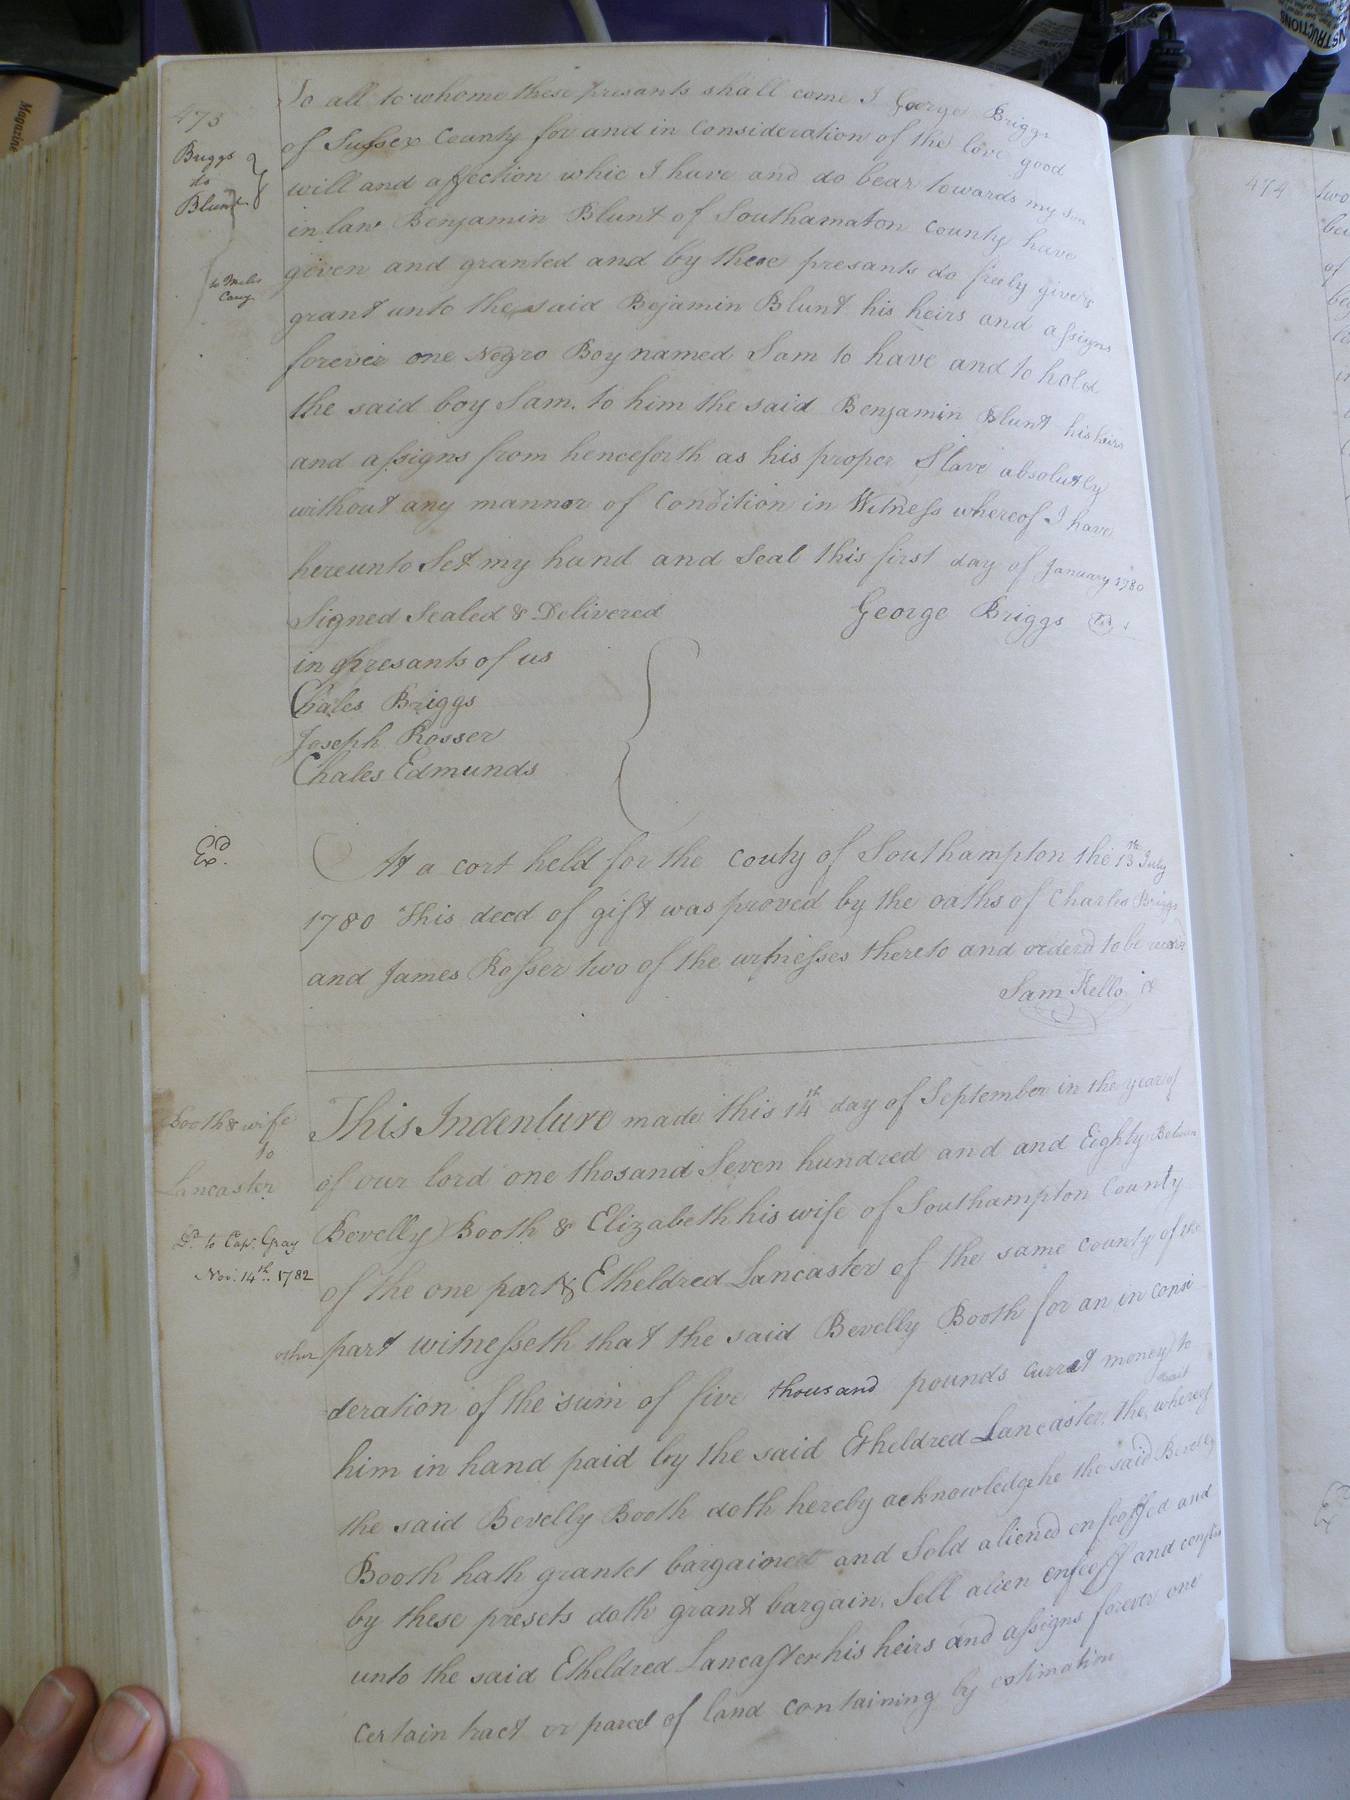 473
Briggs
to
Blunt
to Miles
Cary
To all to whome these presants shall come I George Briggs
of Sussex County for and in Consideration of the love good
will and affection whic I have and do bear towards my Son
in law Benjamin Blunt of Southamaton County have
given and granted and by these presants do freely give &
grant unto the said Bejamin Blunt his heirs and assigns
forever one Negro Boy named Sam to have and to hold
the said boy Sam. to him the said Benjamin Blunt his heirs
and assigns from henceforth as his proper Slave absolutly
without any mannor of Condition in Witness whereof I have
hereunto Set my hand and Seal this first day of January 1780
Signed Sealed & Delivered George Briggs
in presants of us
Chales Briggs
Joseph Rosser
Chales Edmunds
Exd.
At a cort held for the couty of Southampton the 13th July
1780 This deed of gift was proved by the oaths of Charles Briggs
and James Rosser two of the witnesses thereto and orderd to be
Sam Kello
Booth & wife
to
Lancaster
Dd. to Cap. Gray
Nov. 14th. 1782
This Indenture made this 14th day of September in the year of
of our lord one thosand Seven hundred and and Eighty Between
Bevelly Booth & Elizabeth his wife of Southampton County
of the one part & Etheldred Lancaster of the same county of the
other part witnesseth that the said Bevelly Booth for an in consi
deration of the sum of five thousand pounds Currat money to
him in hand paid by the said Etheldred Lancaster, the whereof
the said Bevelly Booth doth hereby acknowledge he the said Bevelly
Booth hath grantet bargained and Sold aliened enfeoffed and
by these presets doth grant bargain, Sell alien enfeoff and confirm
unto the said Etheldred Lancaster his heirs and assigns forever one
certain tract or parcel of land containing by estimation
474
two
of